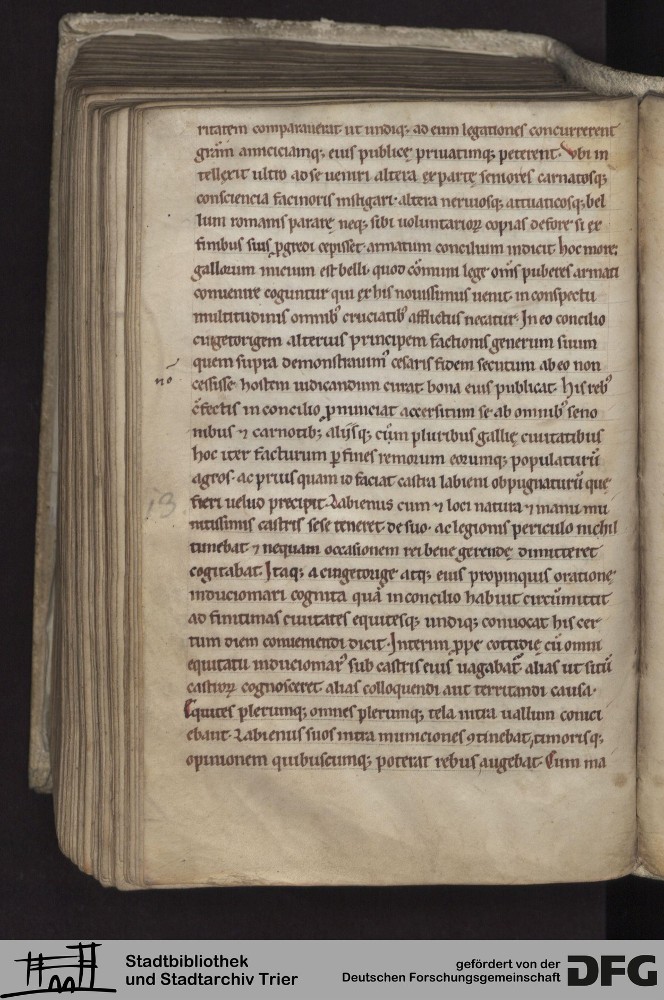 ritatem comparauerat· ut undiq; ad eum legationes concurrerent
grām amiciciamq; eius publicę priuatimq; peterent· Vbi in
tellexit ultro ad se ueniri altera ex partę seniores carnatosq;
consciencia facinoris instigari· altera neruiosq; attuaticosq; bel
lum romanis pararę neq; sibi uoluntarioꝝ copias defore si ex
finibus suis ꝓgredi cepisset· armatum concilium indicit hoc more;
gallorum inicium est belli· quod cōmuni lege om̄s puberes armati
conuenire coguntur qui ex his nouissimus uenit· in conspectu
multitudinis omnibꝰ cruciatibꝰ affictus necatur· In eo concilio
cingetorigem alterius principem factionis generum suum
quem supra demonstrauimꝰ cesaris fidem secutum ab eo non
no
cessisse· hostem iudicandum curat· bona eius publicat· His rebꝰ
cfectis in concilio ꝓnunciat accersitum se· ab omnibꝰ seno
nibus ⁊ carnotib; alijsq; cum pluribus gallię ciuitatibus
hoc iter facturum ꝑ fines remorum eorumq; populaturū
agros· ac prius quam id faciat castra labieni obpugnaturū que
13
fieri uelud precipit· Labienus cum ⁊ loci natura ⁊ manu mu
nitissimis castris sese teneret· de suo· ac legionis periculo nichil
timebat ⁊ nequam occasionem rei bene gerendę dimitteret
cogitabat· Itaq; a cingetorige atq; eius propinquis orationę
induciomari cognita quā in concilio habuit circūmittit
ad finitimas ciuitates equitesq; undiq; conuocat his cer
tum diem conueniendi dicit· Interim ꝓpe cottidię cū omni
equitatu induciomarꝰ sub castris eius uagabat᷑· alias ut sitū
castroꝝ cognosceret· alias colloquendi aut territandi causa·
Equites plerumq; omnes plerumq; tela intra uallum conici
ebant· Labienus suos intra municiones ꝯtinebat, timorisq;
opinionem quibuscumq; poterat rebus augebat· Cum ma
Stadtbibliothek
und Stadtarchiv Trier
gefördert von der
Deutschen Forschungsgemeinschaft
DFG